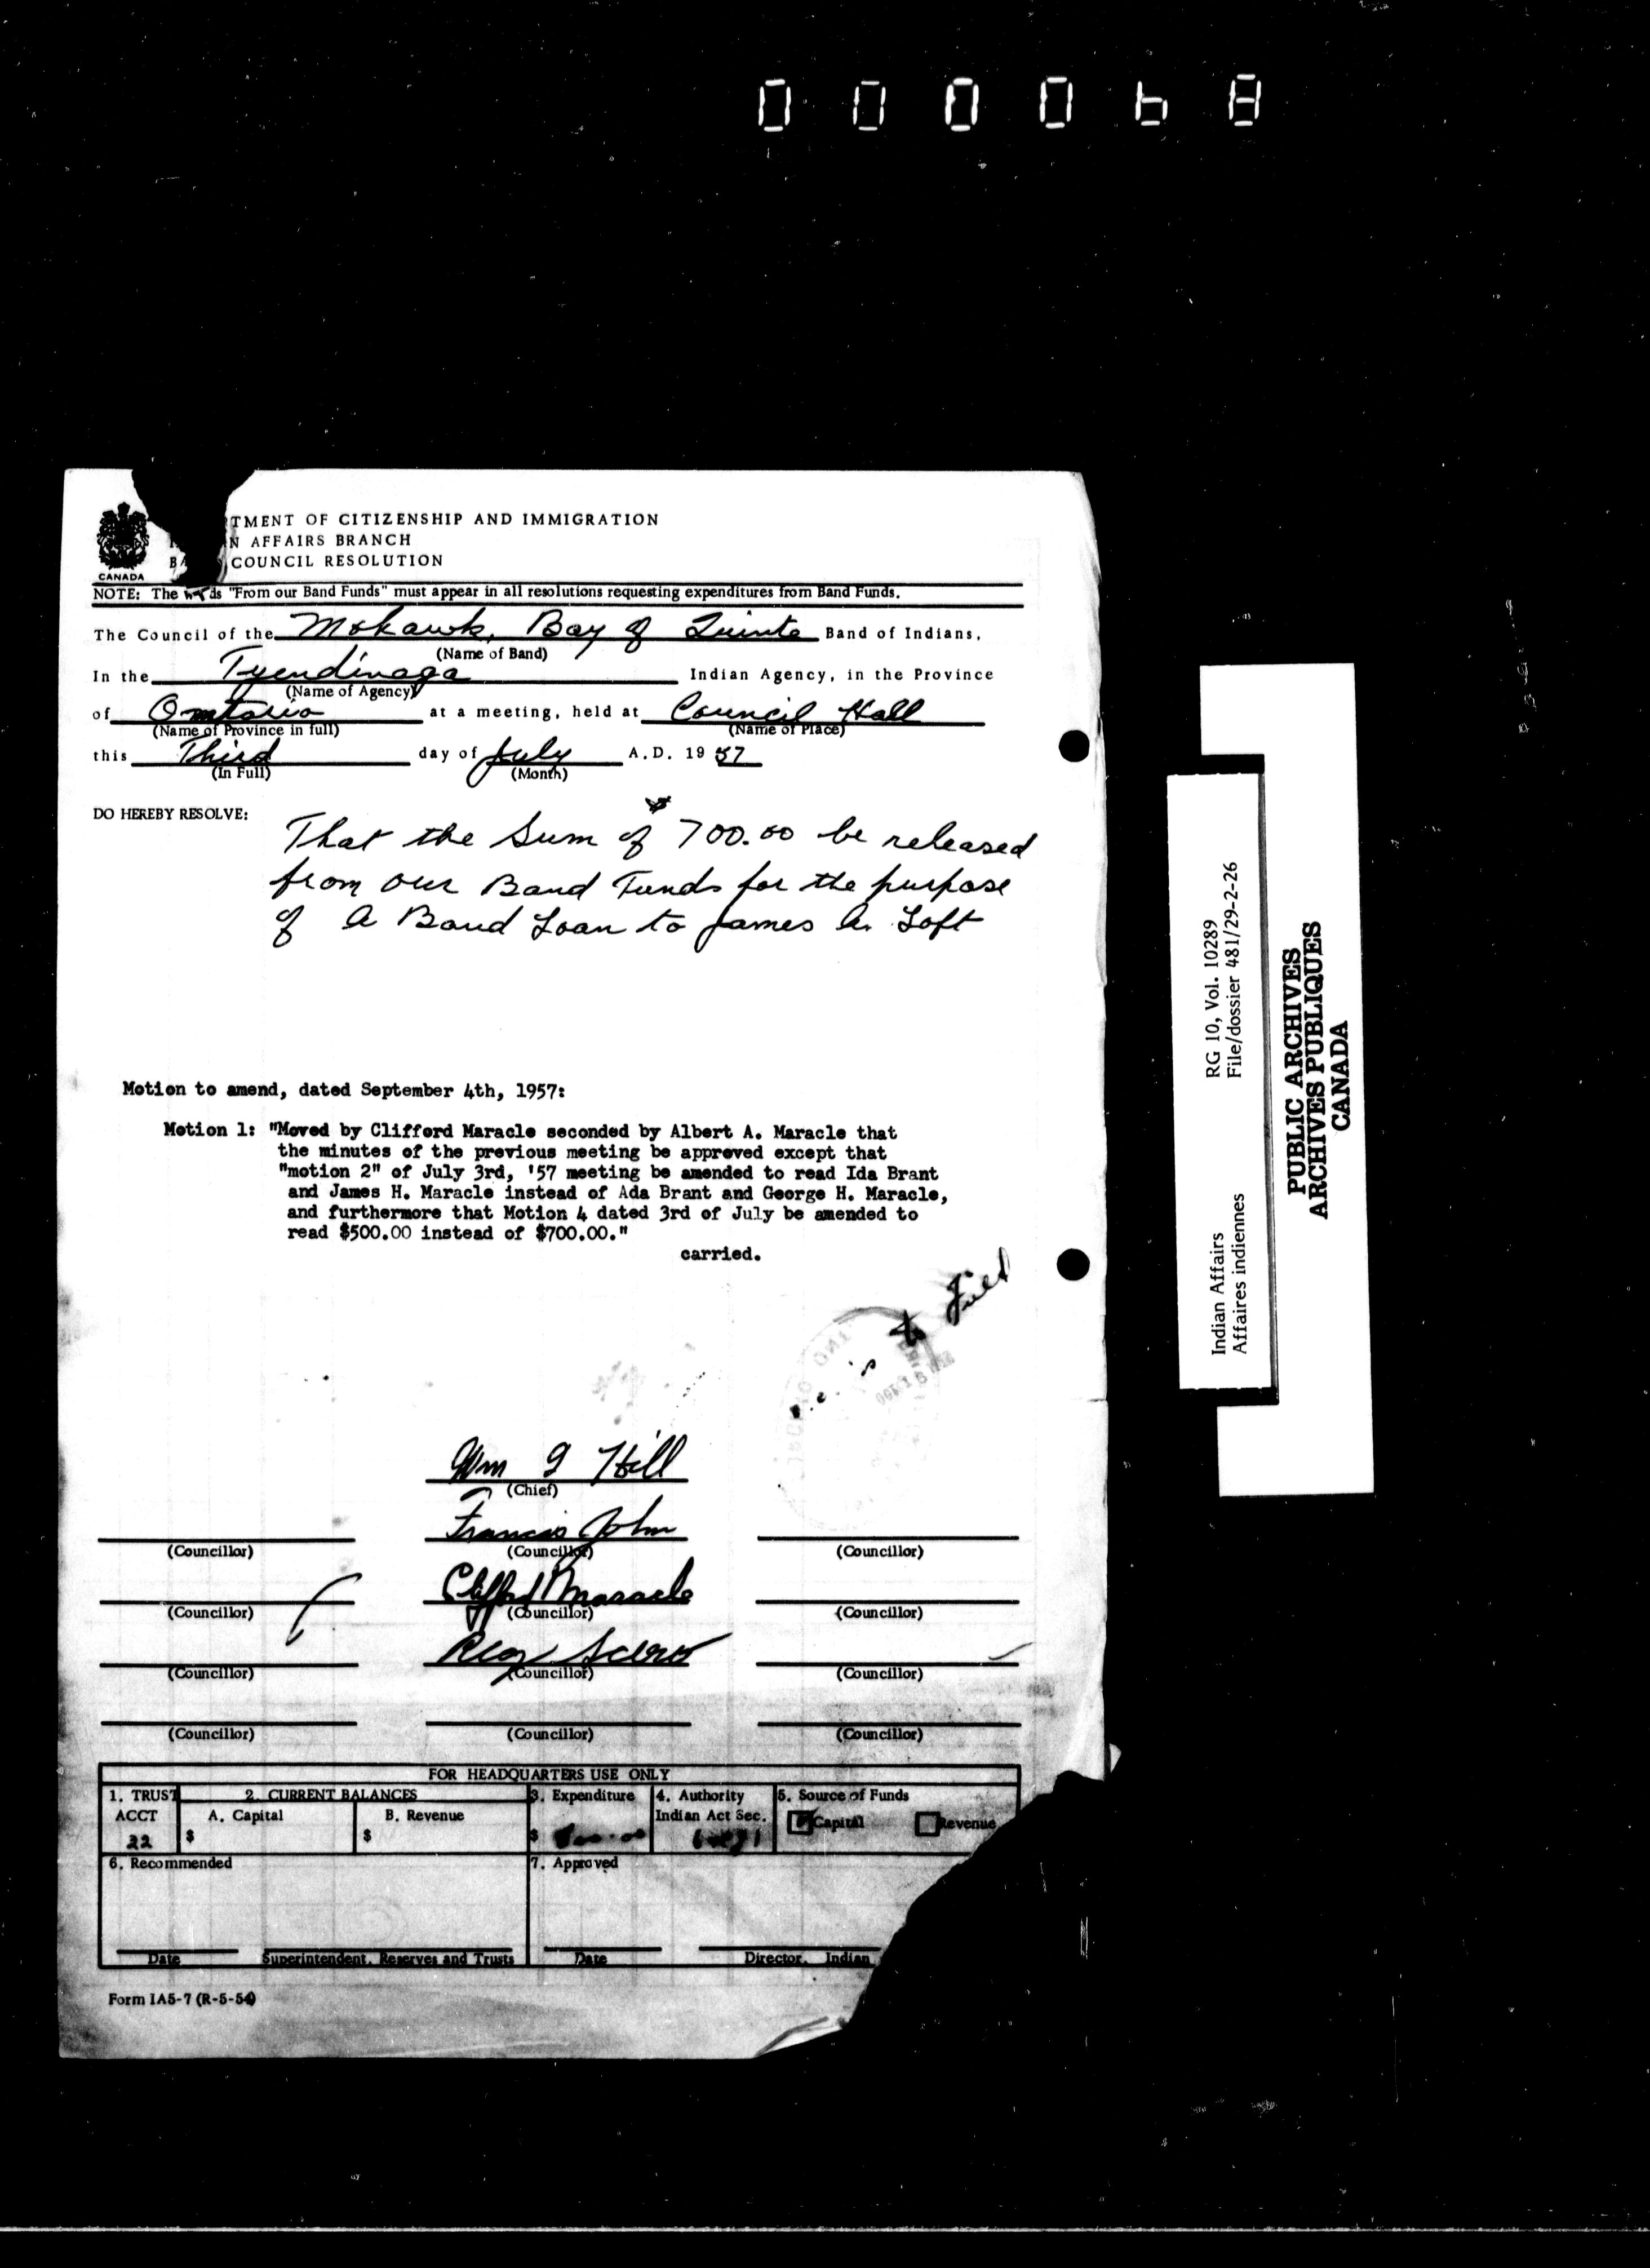 000068
TMENT OF CITIZENSHIP AND IMMIGRATION
N AFFAIRS BRANCH
COUNCIL RESOLUTION
CANADA
NOTE: The words "From our Band Funds" must appear in all resolutions requesting expenditures from Band Funds.
The Council of the Mohawk, Bay of Quinte Band of Indians,
(Name of Band)
In the Tyendinaga Indian Agency, in the Province
(Name of Agency)
of Ontario at a meeting, held at Council Hall
(Name of Province in full) (Name of Place)
this Third day of July A.D. 19 57
(In Full) (Month)
DO HEREBY RESOLVE:
That the Sum of $ 700.00 be released
from our Band Funds for the purpose
of a Band Loan to James A. Loft
Motion to amend, dated September 4th, 1957:
Motion 1: "Moved by Clifford Maracle seconded by Albert A. Maracle that
the minutes of the previous meeting be approved except that
"motion 2" of July 3rd, '57 meeting be amended to read Ida Brant
and James H. Maracle instead of Ada Brant and George H. Maracle,
and furthermore that Motion 4 dated 3rd of July be amended to
read $500.00 instead of $700.00."
carried.
Wm G Hill
(Chief)
Francis John
(Councillor) (Councillor) (Councillor)
Clifford Maracle
(Councillor) (Councillor) (Councillor)
Reg Scero
(Councillor) (Councillor) (Councillor)
(Councillor) (Councillor) (Councillor)
FOR HEADQUARTERS USE ONLY
1. TRUST 2. CURRENT BALANCES 3. Expenditure 4. Authority 5. Source of Funds
ACCT A. Capital B. Revenue Indian Act Sec. Capital Revenue
22 $ $ $
6. Recommended 7. Approved
Date Superintendent, Reserves and Trusts Date Director, Indian
Form IA5-7 (R-5-54)
RG 10, Vol. 10289
File/dossier 481/29-2-26
Indian Affairs
Affaires indiennes
PUBLIC ARCHIVES
ARCHIVES PUBLIQUES
CANADA